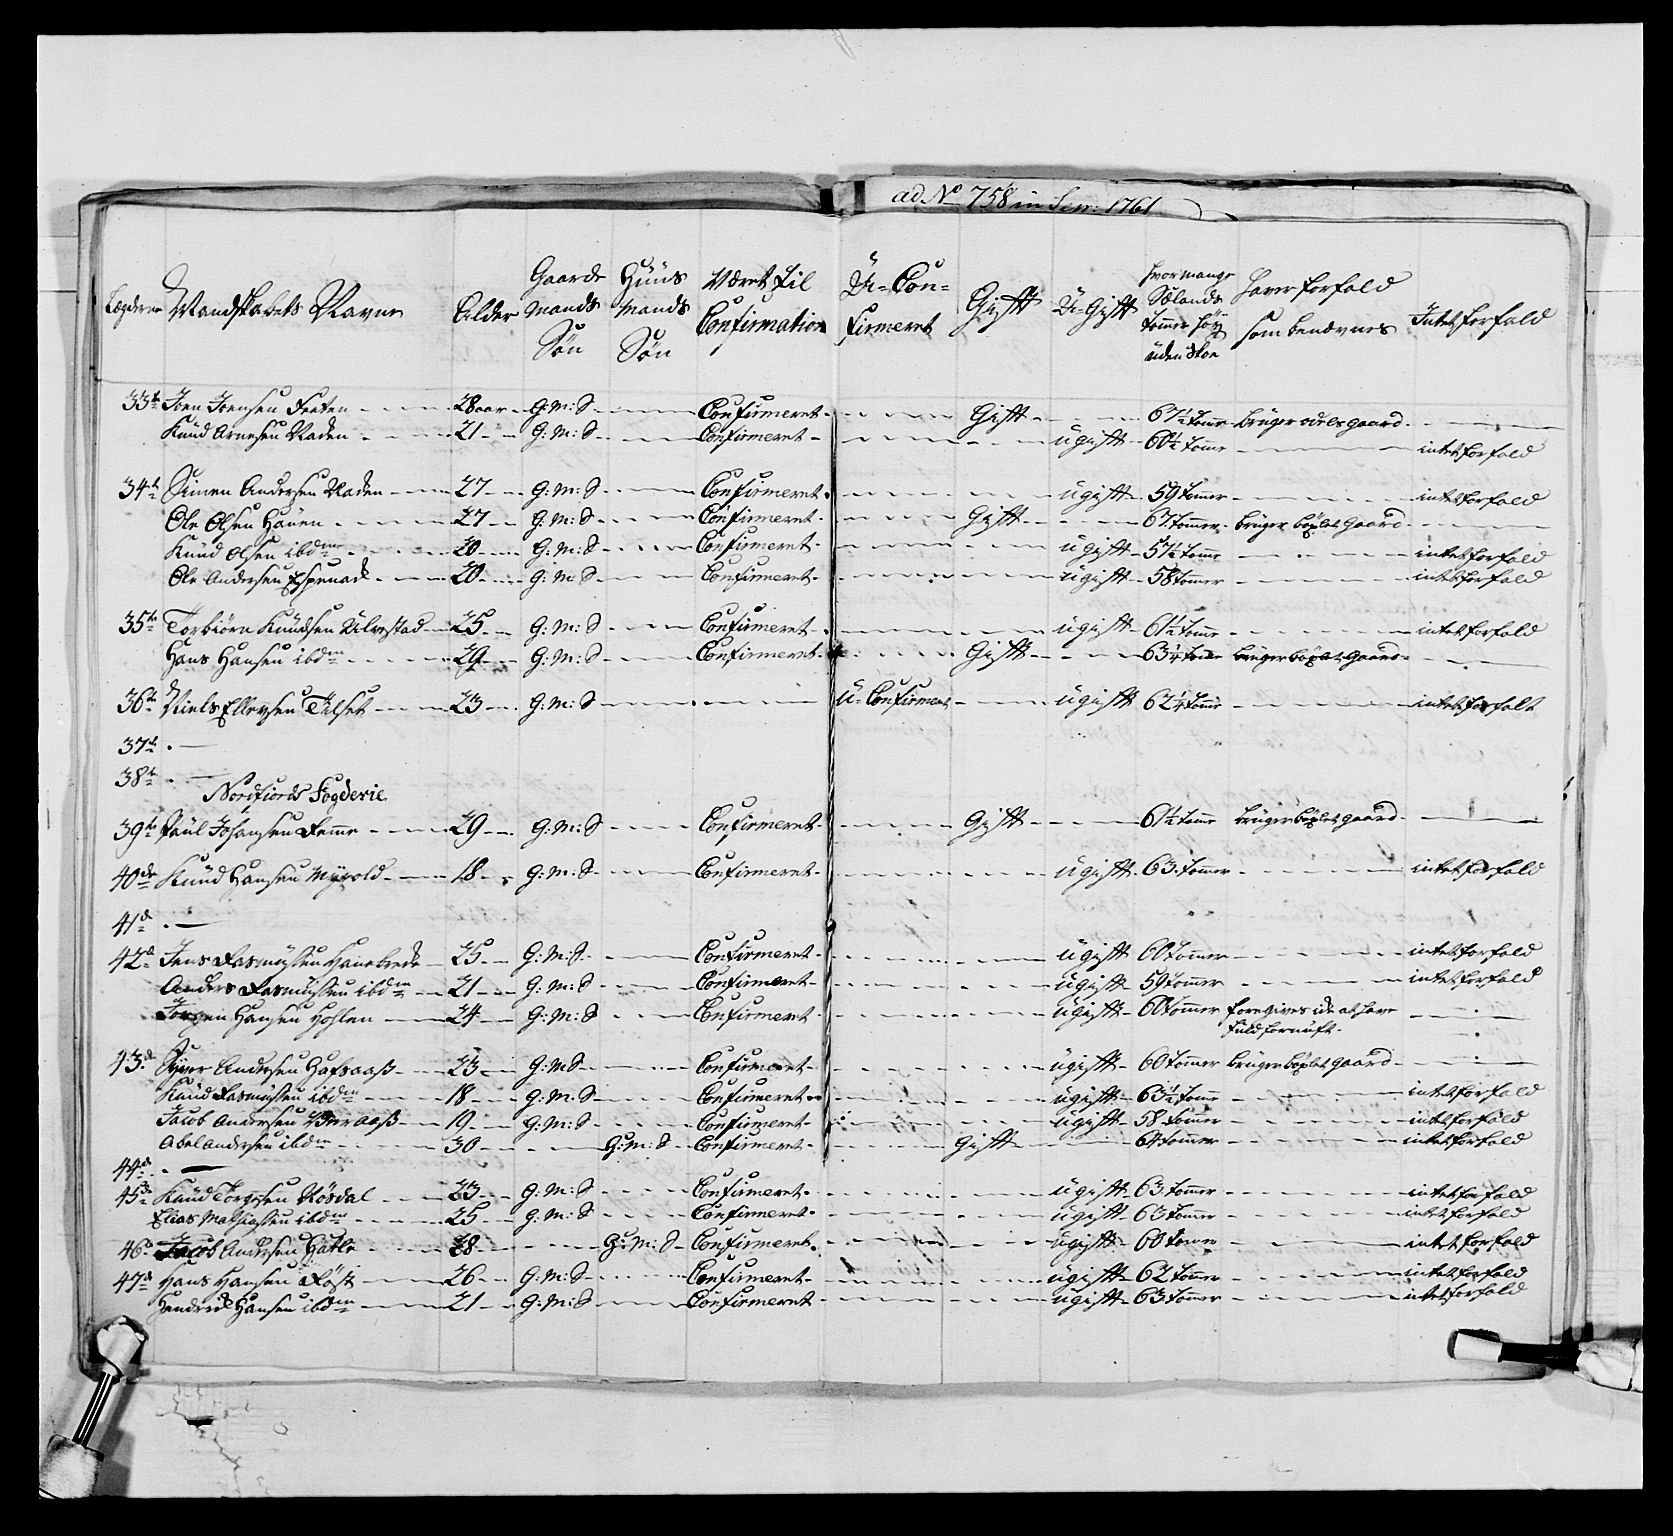 ad No 758 in Sess: 1761
Lægderne Mandskabets Navne Alder Gaardmands Søn Huusmands Søn Været til Confirmation U-Confirmeret Gift U-Gift hvor mange Sælands tommer høy uden Skoe haver forfald som benævnes Intet forfald
33te Joen Joensen 28 aar G: M: S Confirmeret Gift 67½ tomme bruger odels gaard
Knud Arnesen 21 G: M: S Confirmeret ugift 60½ tomme intet forfald
34te Simen Andersen 27 G: M: S Confirmeret ugift 59 tommer intet forfald
Ole Olsen Hauen 27 G: M: S Confirmeret Gift 67 tommer bruger böxlet gaard
Knud Olsen ibdm 20 G: M: S Confirmeret ugift 57½ tomme intet forfald
Ole Andersen 20 G: M: S Confirmeret ugift 58 tommer intet forfald
35te Torbiörn Knudsen Ulvestad 25 G: M: S Confirmeret ugift 61½ tomme intet forfald
Hans Hansen ibdm 29 G: M: S Confirmeret Gift 63¼ tomme bruger böxlet gaard
36te Niels Ellevsen 23 G: M: S U-Confirmeret ugift 62¼ tomme intet forfalt
37te
38te
Nordfiords Fogderie
39te Paul Johansen 29 G: M: S Confirmeret Gift 61½ tomme bruger böxlet gaard
40de Knud Hansen Myrold 18 G: M: S Confirmeret ugift 63 tommer intet forfald
41de
42de Jens Rasmussen 25 G: M: S Confirmeret ugift 60 tommer intet forfald
Anders Rasmussen ibdm 21 G: M: S Confirmeret ugift 59 tommer intet forfald
Jörgen Hansen 24 G: M: S Confirmeret ugift 60 tommer foregives ike at have
fuld fornuft
43de Syver Andersen 23 G: M: S Confirmeret ugift 60 tommer bruger böxlet gaard
Knud Rasmussen ibdm 18 G: M: S Confirmeret ugift 63½ tomme intet forfald
Jacob Andersen 19 G: M: S Confirmeret ugift 58 tommer intet forfald
Abel Andersen ibdm 30 G: M: S Confirmeret Gift 64 tommer intet forfald
44de
45de Knud 23 G: M: S Confirmeret ugift 63 tommer intet forfald
Elias Mathiassen ibdm 25 G: M: S Confirmeret ugift 63 tommer intet forfald
46de Jacob Andersen 28 G: M: S Confirmeret ugift 60 tommer intet forfald
47de Hans Hansen 26 G: M: S Confirmeret ugift 62 tommer intet forfald
Hansen ibdm 21 G: M: S Confirmeret ugift 63 tommer intet forfald